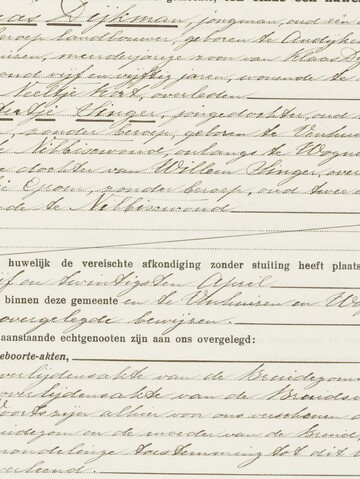 as Dijkman, jongman, oud een
beroep landbouwer, geboren te Andijk
huizen, meerderjarige zoon van Klaas D
oud vijf en vijftig jaren, wonende te
Neeltje Kort, overleden
Slinger, jongedochter, oud
zonder beroep, geboren te Venhui
Nibbixwoud, onlangs te Wogn
dochter van Willem Slinger, over
Groen, zonder beroep, oud twee
te Nibbixwoud
huwelijk de vereischte afkondiging zonder stuiting heeft plaats
vijf en twintigsten April
binnen deze gemeente en te Venhuizen en W
overgelegde bewijzen.
aanstaande echtgenooten zijn aan ons overgelegd:
eboorte-akten,
overlijdensakte van de Bruidegom
overlijdensakte van de Bruids
Voorts zijn alhier voor ons verschenen
Bruidegom en de moeder van de Bruid
mondelinge toestemming tot dit
verleend.